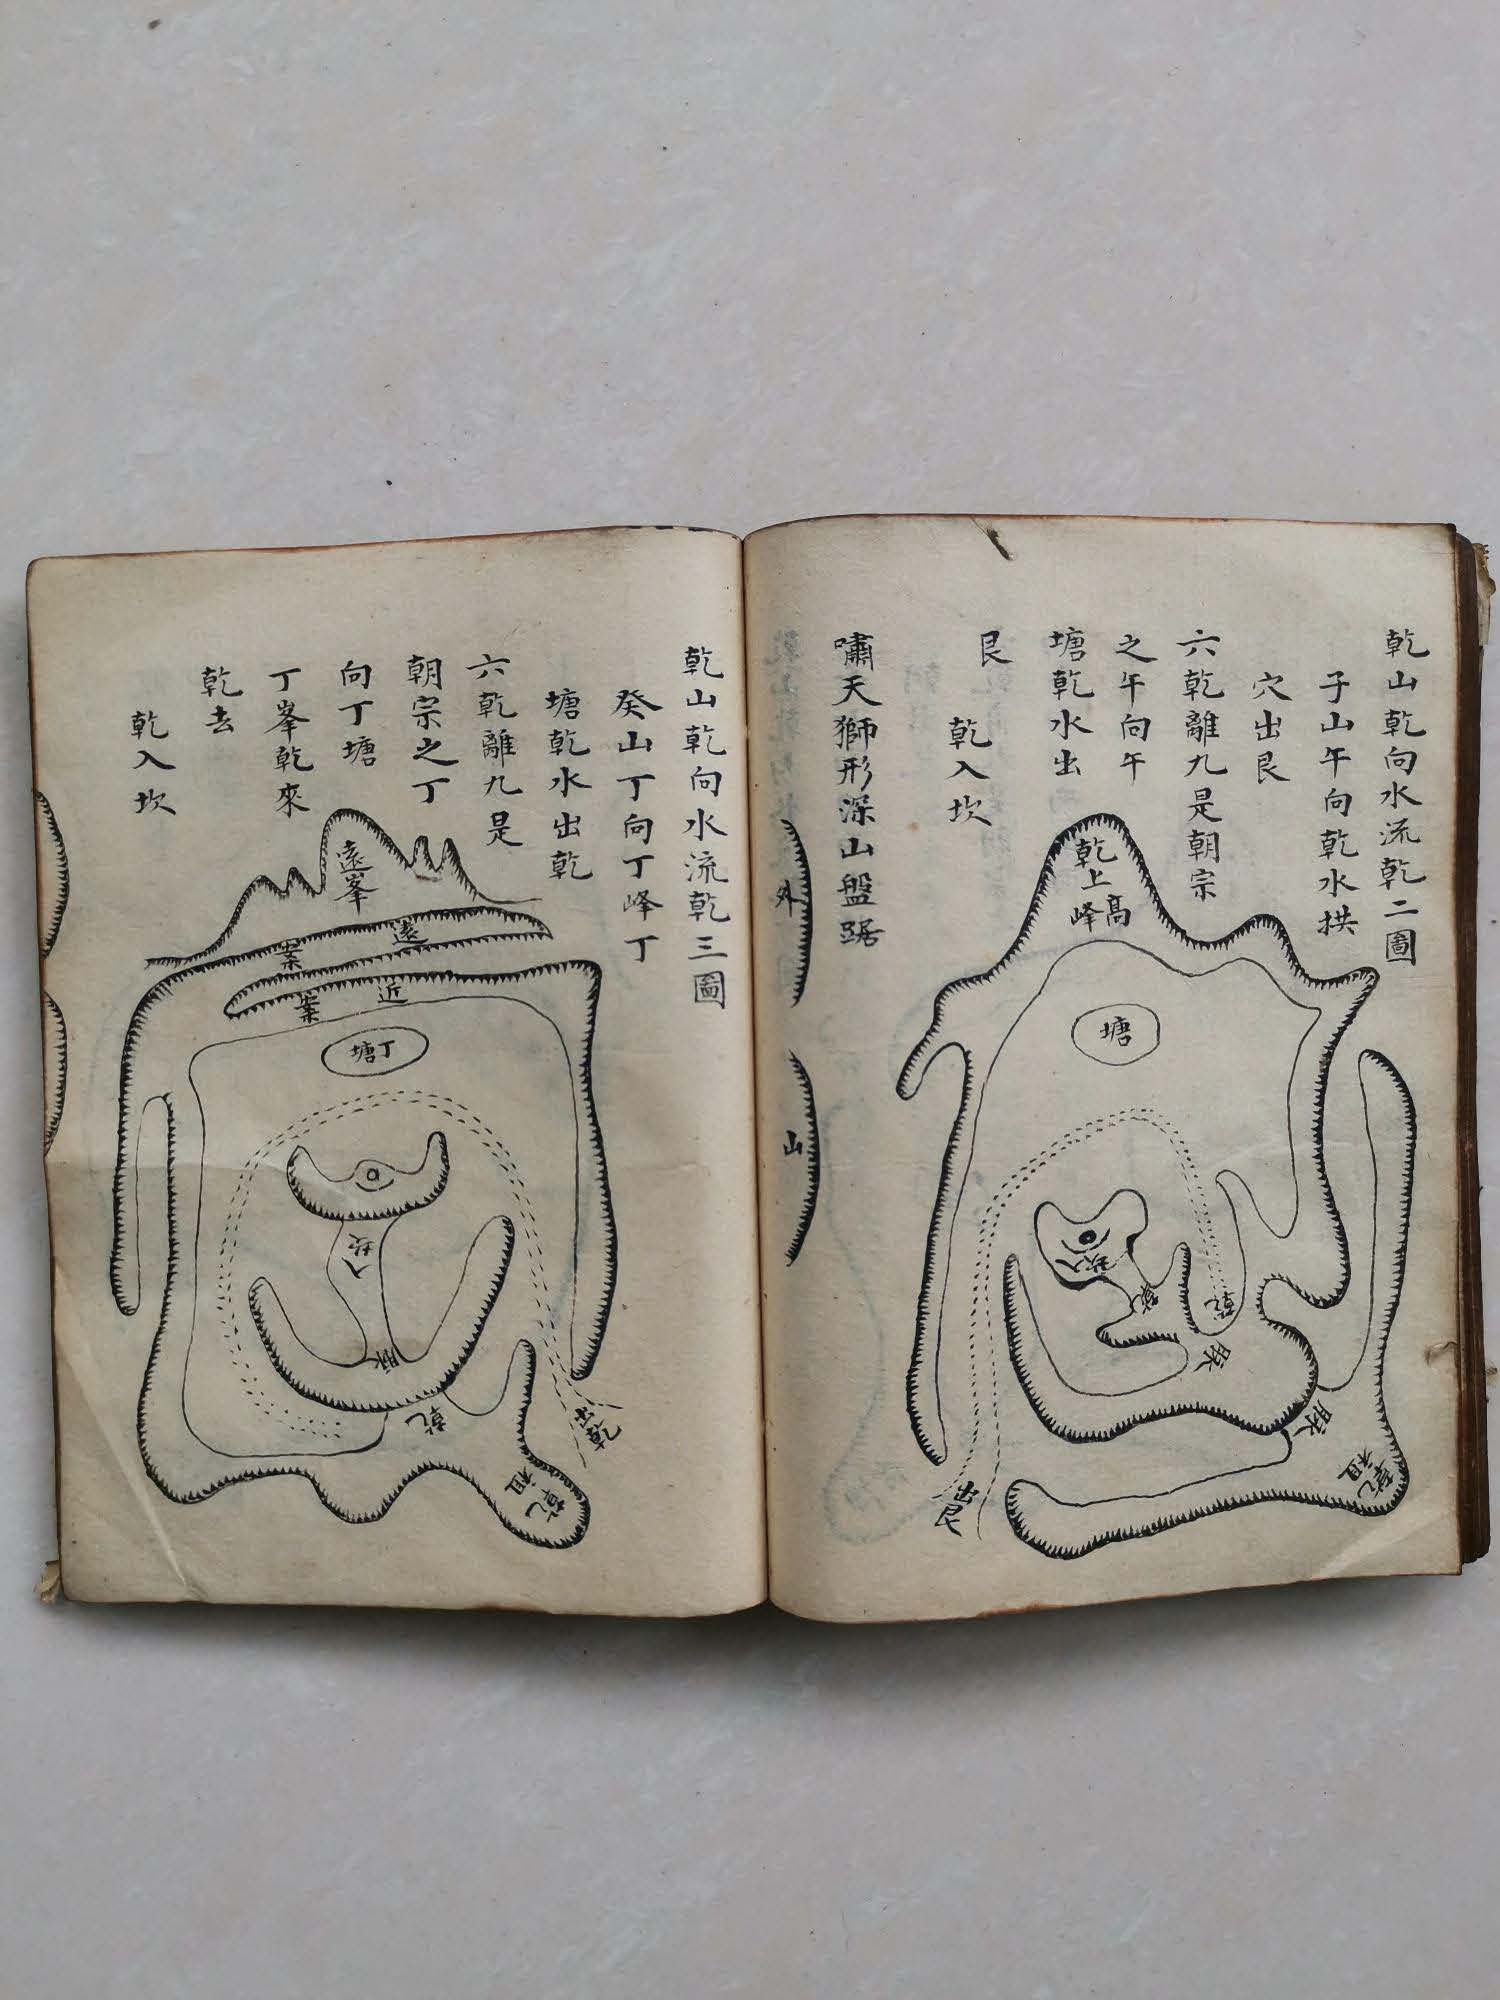 乾山乾向水流乾二圖
子山午向乾水拱
穴出艮
六乾離九是朝宗
之午向午
塘乾水出
艮
乾入坎
乾上高峰
塘
入坎
乾
乾
脉
脉
乾祖
出艮
嘯天獅形深山盤踞
外
山
乾山乾向水流乾三圖
癸山丁向丁峰丁
塘乾水出乾
六乾離九是
朝宗之丁
向丁塘
丁峯乾來
乾去
乾入坎
遠峯
遠案
近案
丁塘
入坎
脉
乾
乾祖